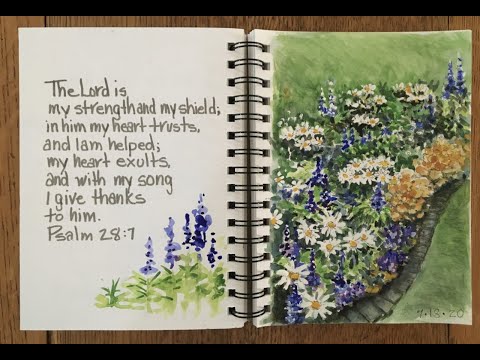 The Lord is
my strength and my shield;
in him my heart trusts,
and I am helped;
my heart exults,
and with my song
I give thanks
to him.
Psalm 28:7
7·13·20